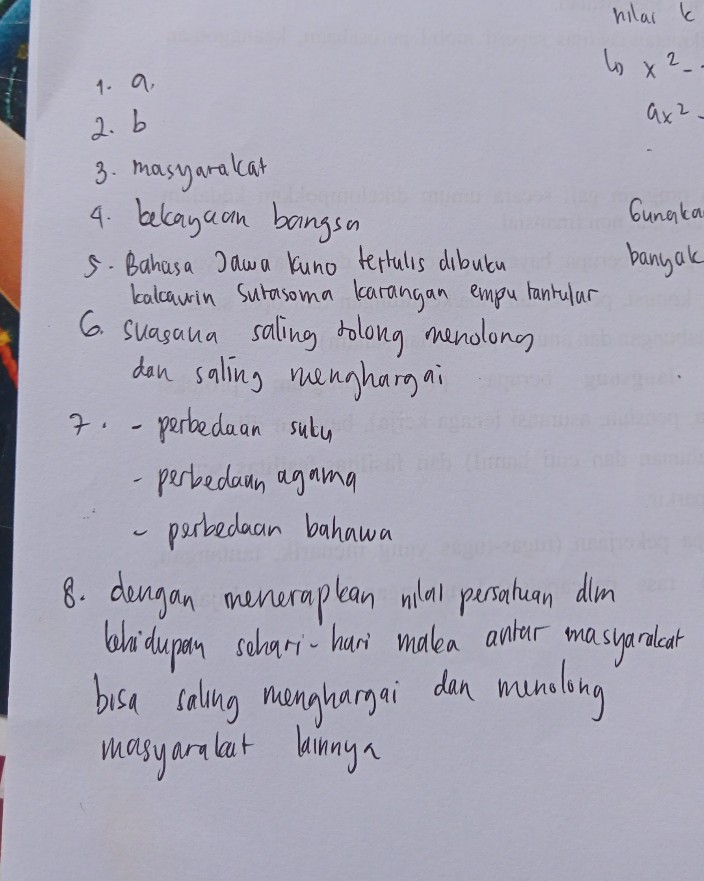 nilai k
↳ x² -
ax² -
1. a.
2. b
3. masyarakat
4. kekayaan bangsa
Gunaka
5. Bahasa Jawa Kuno tertulis dibuku
banyak
kalcawin Sutasoma karangan empu tantular
6. suasana saling tolong menolong
dan saling menghargai
7. - perbedaan suku
- perbedaan agama
- perbedaan bahawa
8. dengan menerapkan nilai persatuan dlm
kehidupan sehari-hari maka antar masyarakat
bisa saling menghargai dan menolong
masyarakat lainnya